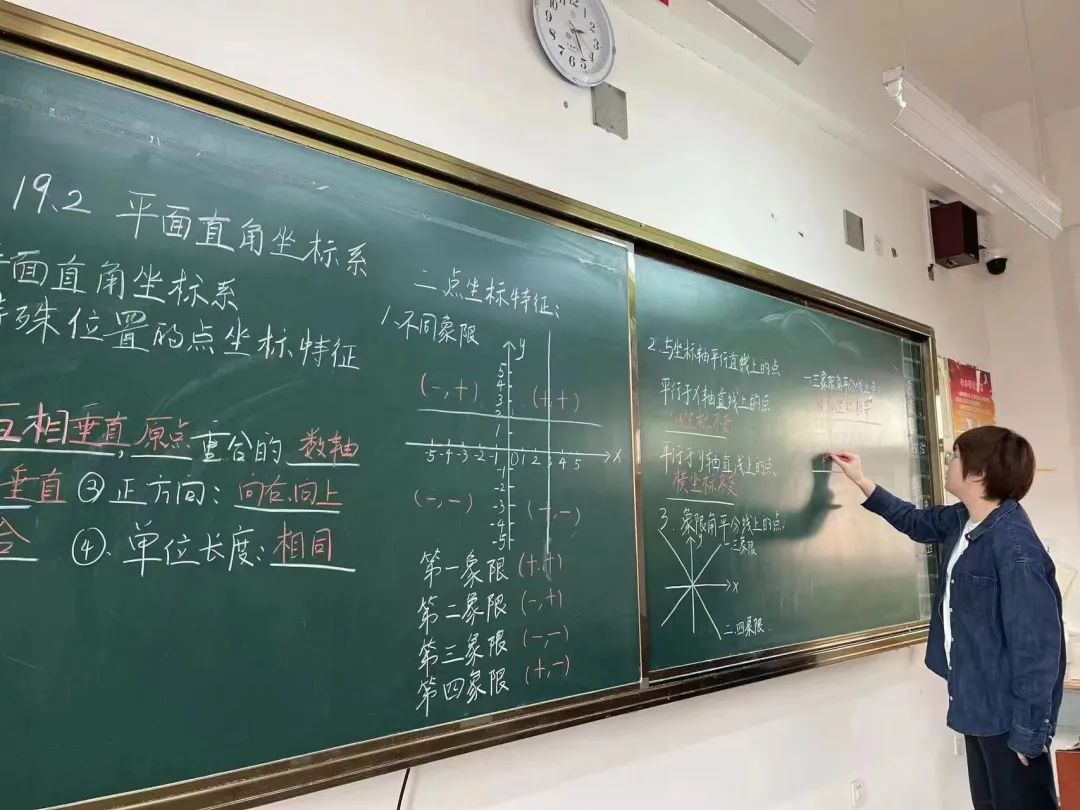 19.2 平面直角坐标系
面直角坐标系
殊位置的点坐标特征
互相垂直,原点重合的数轴
垂直 ③正方向:向右,向上
合 ④.单位长度:相同
二.点坐标特征:
1.不同象限
y
(-,+) (+,+)
5
4
3
2
1
-5 -4 -3 -2 -1 0 1 2 3 4 5 x
-1
-2
-3
-4
-5
(-,-) (-,-)
第一象限 (+,+)
第二象限 (-,+)
第三象限 (-,-)
第四象限 (+,-)
2.与坐标轴平行直线上的点
平行于x轴直线上的点
纵坐标不变
平行于y轴直线上的点
横坐标不变
3.象限角平分线上的点:
y
一三象限
x
二.四象限.
一三象限角平分线上点:
12
1
2
3
4
5
6
8
9
10
11